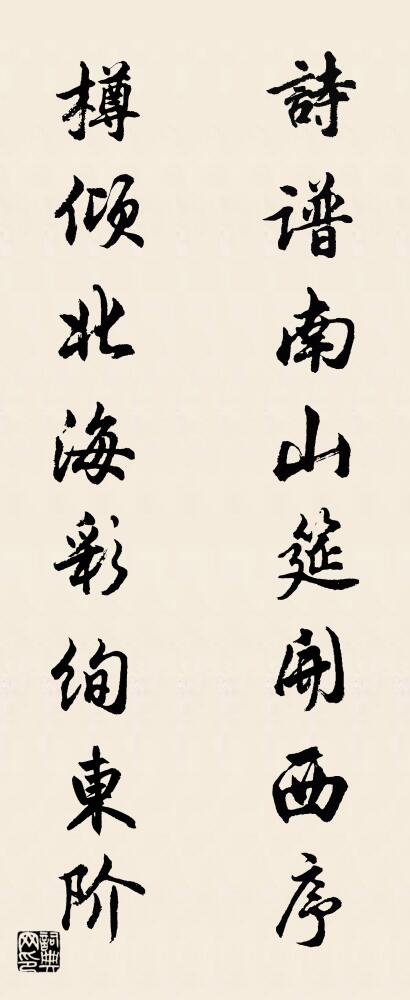 詩谱南山筵開西序
樽倾北海彩绚東阶
詞典网印